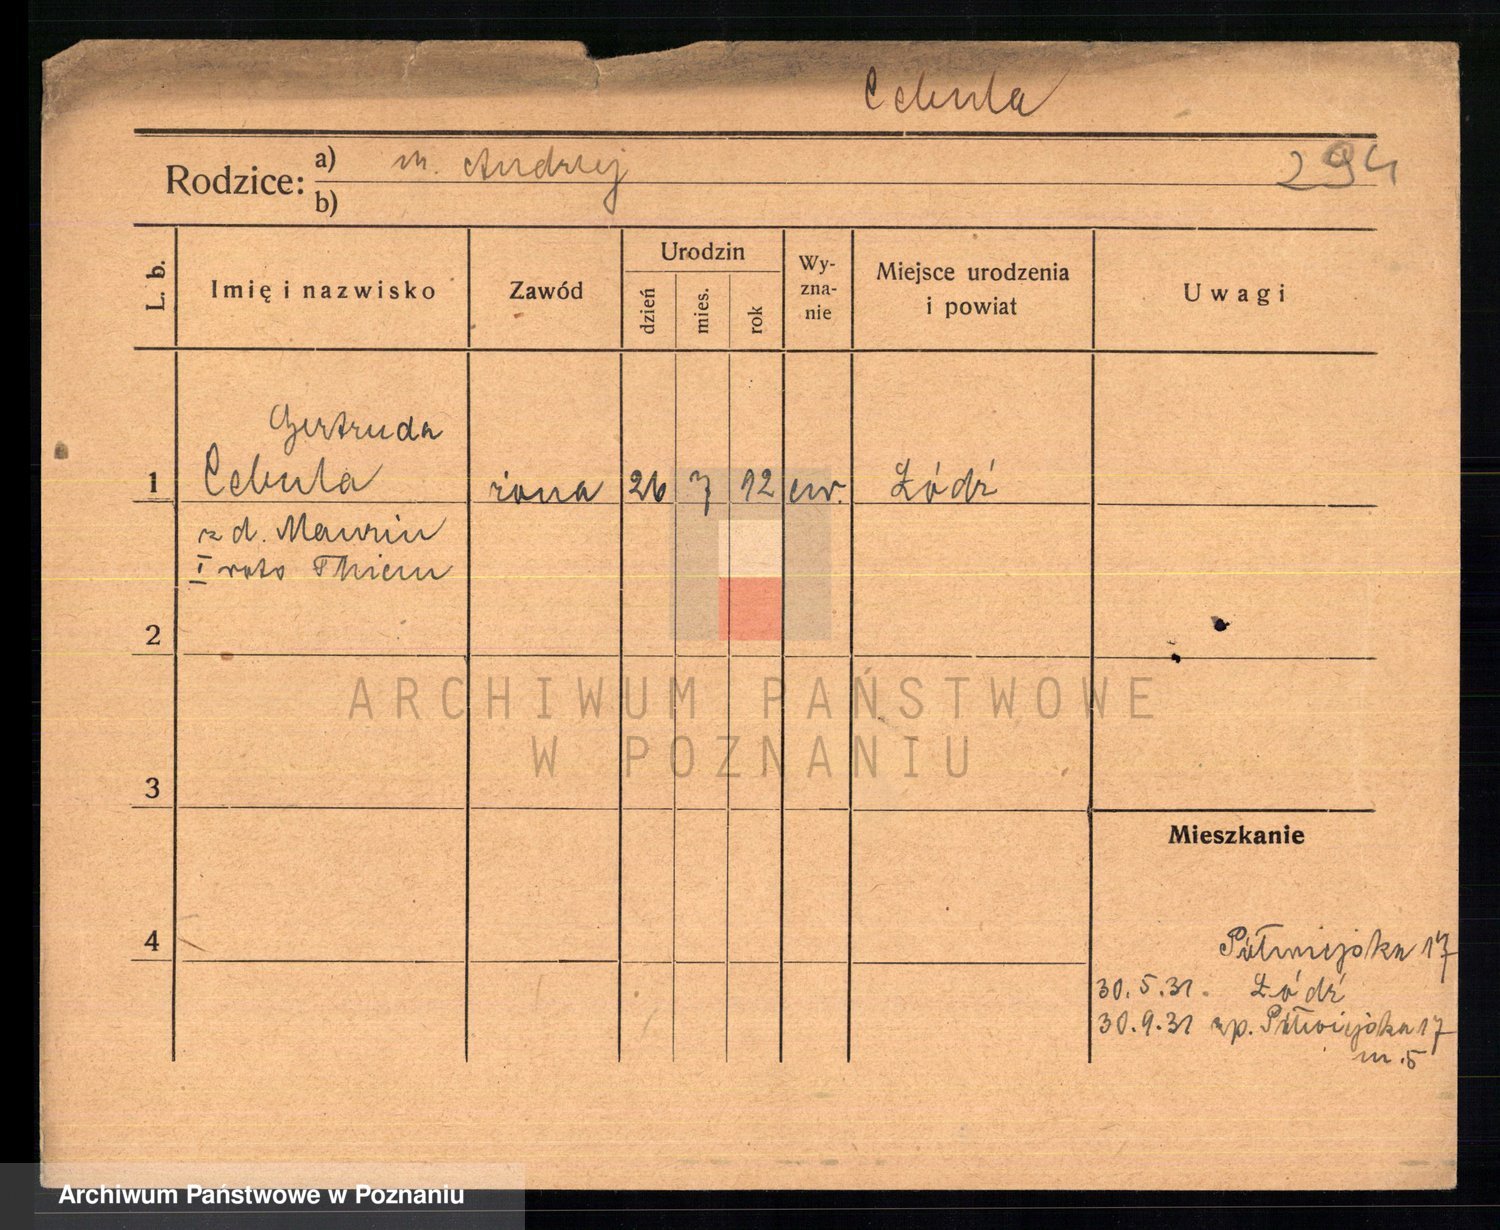 Cebula
Rodzice:
a) m. Andrzej
294
b)
L. b.
Imię i nazwisko
Zawód
Urodzin
dzień
mies.
rok
Wy-
zna-
nie
Miejsce urodzenia
i powiat
Uwagi
Gertruda
1 Cebula żona 26 7 12 ew. Łódź
z d. Maurin
I voto Thiem
2
3
4
Mieszkanie
Półwiejska 17
30.5.31. Łódź
30.9.31 zp. Półwiejska 17
m. 5
ARCHIWUM PAŃSTWOWE
W POZNANIU
Archiwum Państwowe w Poznaniu